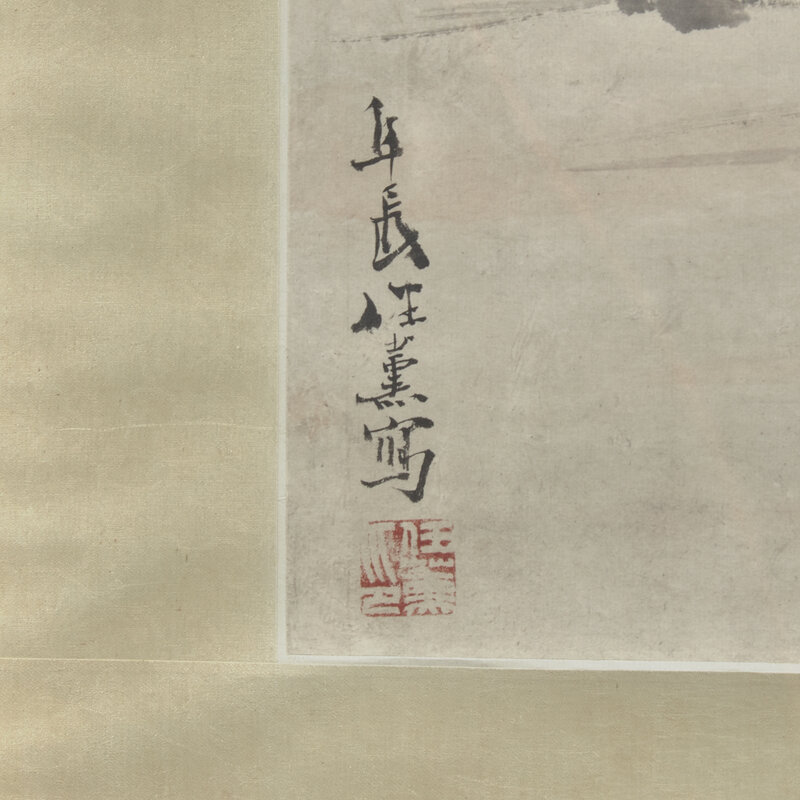 阜長任薰寫
任薰印